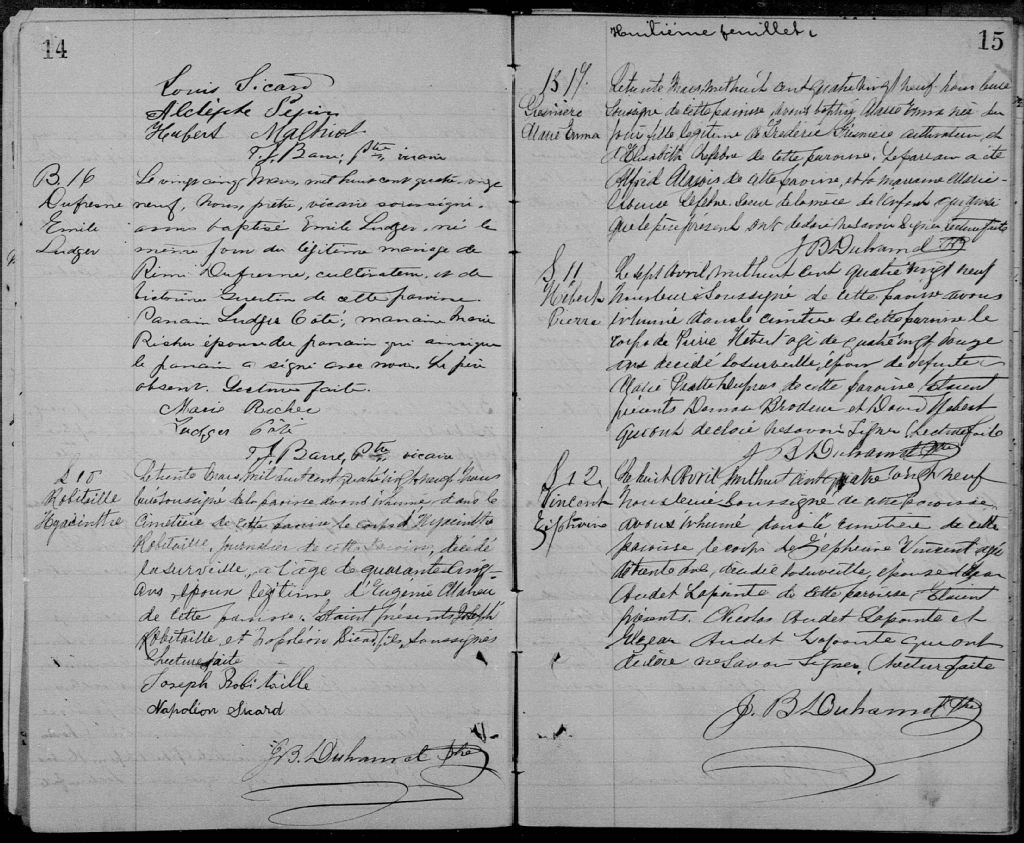 14
Louis Sicard
Hubert
F. J. Barre, Ptre, vicaire
B 16
Dufresne
Emile
Ludger
Le vingt cinq Mars, mil huit cent quatre-vingt
neuf, Nous, prêtre, vicaire soussigné
avons baptisé Emile Ludger, né le
même jour du légitime mariage de
Rémi Dufresne, cultivateur, et de
Victorine Guertin de cette paroisse.
Parrain Ludger Côté, marraine Marie
Richer épouse du parrain qui ainsi que
le parrain a signé avec nous. Le père
absent. Lecture faite.
Marie Richer
Ludger Côté
F. J. Barre, Ptre, vicaire
S 10
Robitaille
Hyacinthe
Le trente Mars mil huit cent quatre vingt neuf Nous
curé soussigné de la paroisse avons inhumé dans le
Cimetière de cette paroisse le corps d'Hyacinthe
Robitaille, journalier de cette paroisse, décédé
la surveille, a l'age de quarante cinq
ans, époux légitime d'Eugénie
de cette paroisse. Etaient présents Joseph
Robitaille et Napoléon Sicard, soussignés
Lecture faite
Joseph Robitaille
Napoléon Sicard
J. B. Duhamel Ptre
Huitième feuillet
15
B 17.
Marie Emma
Le trente Mars mil huit cent quatre vingt neuf Nous curé
soussigné de cette paroisse, avons baptisé Marie Emma née du
jour fille légitime de Frédéric cultivateur et
d'Elisabeth Lefebvre de cette paroisse. Le parrain a été
Alfred de cette paroisse, et la marraine Marie-
Louise Lefebvre soeur de la mère de l'enfant qui ainsi
que le père présent ont déclaré ne savoir signer Lecture faite
J B Duhamel Ptre
S 11
Hébert
Pierre
Le sept Avril mil huit cent quatre vingt neuf
Nous curé soussigné de cette paroisse avons
inhumé dans le cimetière de cette paroisse le
corps de Pierre Hébert agé de quatre vingt douze
ans décédé la surveille, époux de défunte
Marie de cette paroisse Etaient
présents Damase Brodeur et David Hébert
qui ont déclaré ne savoir signer Lecture faite
J B Duhamel Ptre
S 12.
Vincent
Zéphirine
Le huit Avril mil huit cent quatre vingt neuf
Nous curé soussigné de cette paroisse
avons inhumé dans le cimetière de cette
paroisse le corps de Zéphirine Vincent agée
de trente ans, décédée la surveille, épouse
Audet Lapointe de cette paroisse Etaient
présents. Nicolas Audet Lapointe et
Audet Lapointe qui ont
déclaré ne savoir signer. Lecture faite
J. B Duhamel Ptre